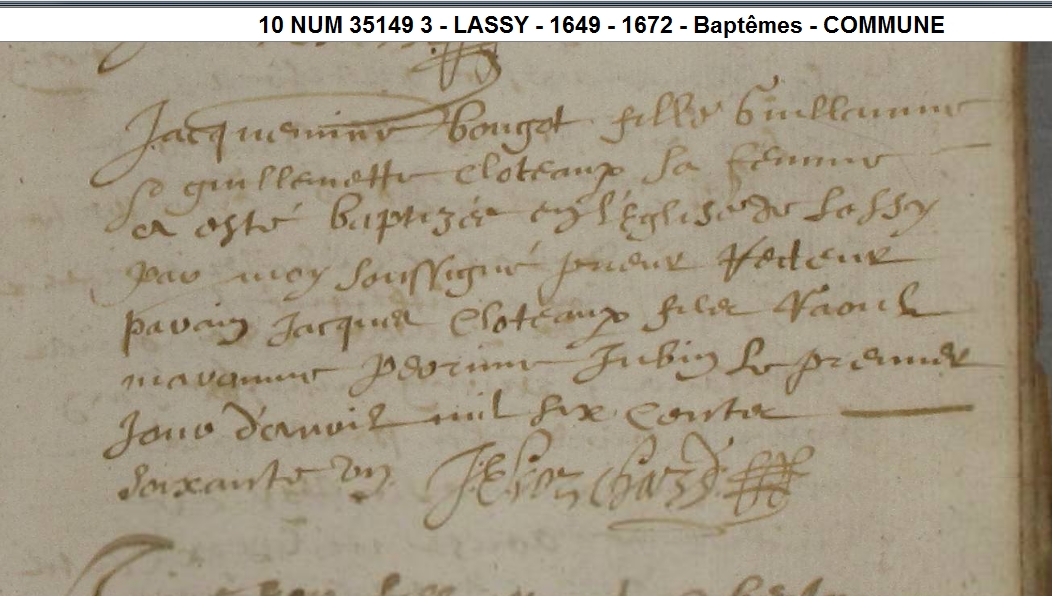 10 NUM 35149 3 - LASSY - 1649 - 1672 - Baptêmes - COMMUNE
Jacquemine bougot fille Guillaume
& guillemette Cloteaux sa femme
a esté baptizée en l'Eglise de Lassy
par moy soussigné prieur Recteur
parain Jacques Cloteaux fils Raoul
marainne Perrine Jubin le premier
Jour d'avril mil six Cents
soixante un